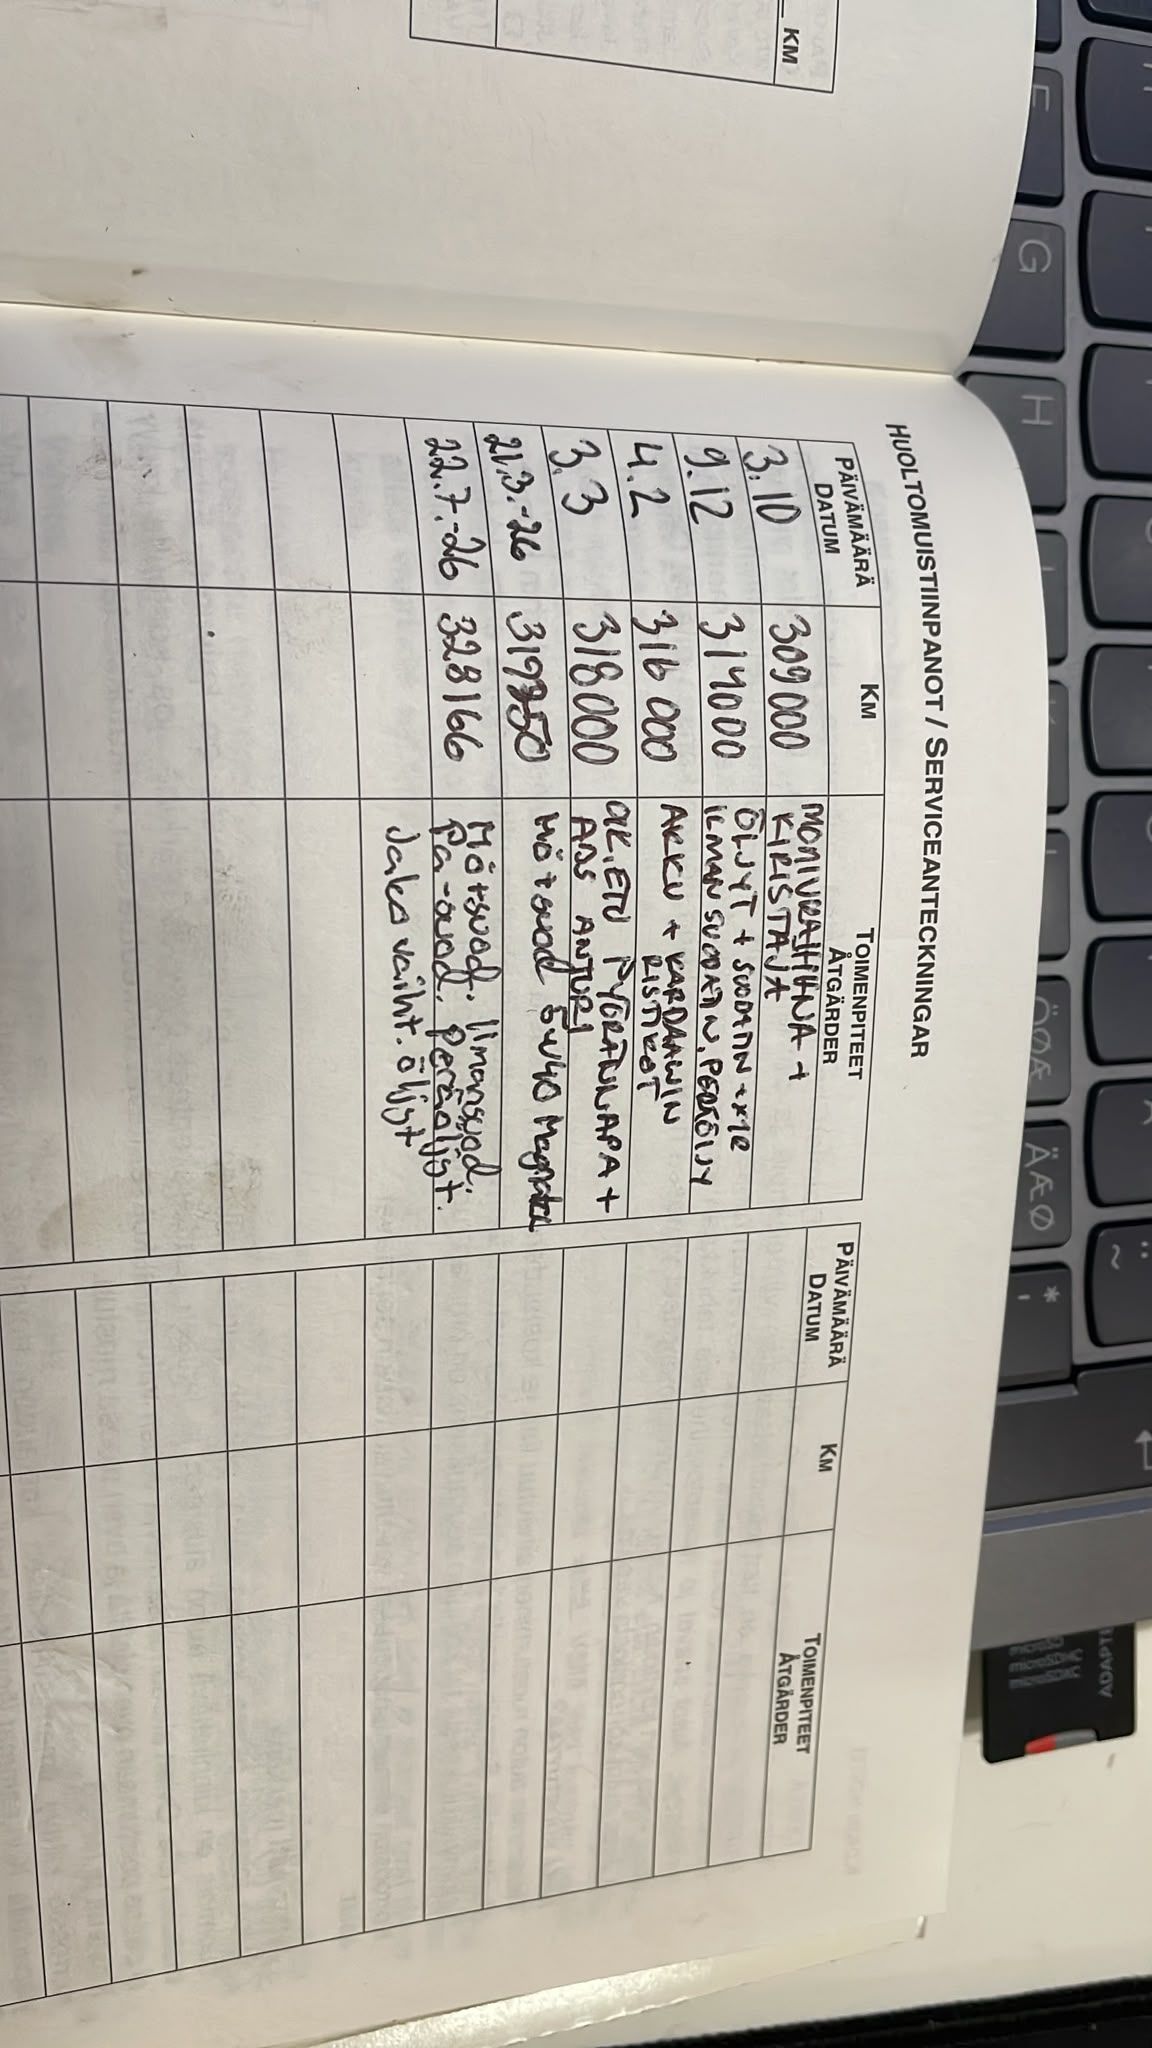 KM
HUOLTOMUISTIINPANOT / SERVICEANTECKNINGAR
PÄIVÄMÄÄRÄ DATUM KM TOIMENPITEET ÅTGÄRDER
3.10 309000 MONIURAHIHNA + KIRISTÄJÄ
9.12 314000 ÖLJYT + SUODATIN +
ILMANSUODATIN, PERÄÖLJY
4.2 316 000 AKKU + KARDAANIN
RISTIKOT
3.3 318000 OIK. ETU PYÖRÄNNAPA +
ABS ANTURI
21.3.-26 Mö + suod 5w40 Magnatec
22.7.-26 328166 Mö + suod. Ilmansuod.
Pa-suod. Peräöljyt.
Jako vaiht. öljyt
PÄIVÄMÄÄRÄ DATUM KM TOIMENPITEET ÅTGÄRDER
F
G
H
ÖØÆ
ÄÆØ
* '
¨ ~
ADAPT